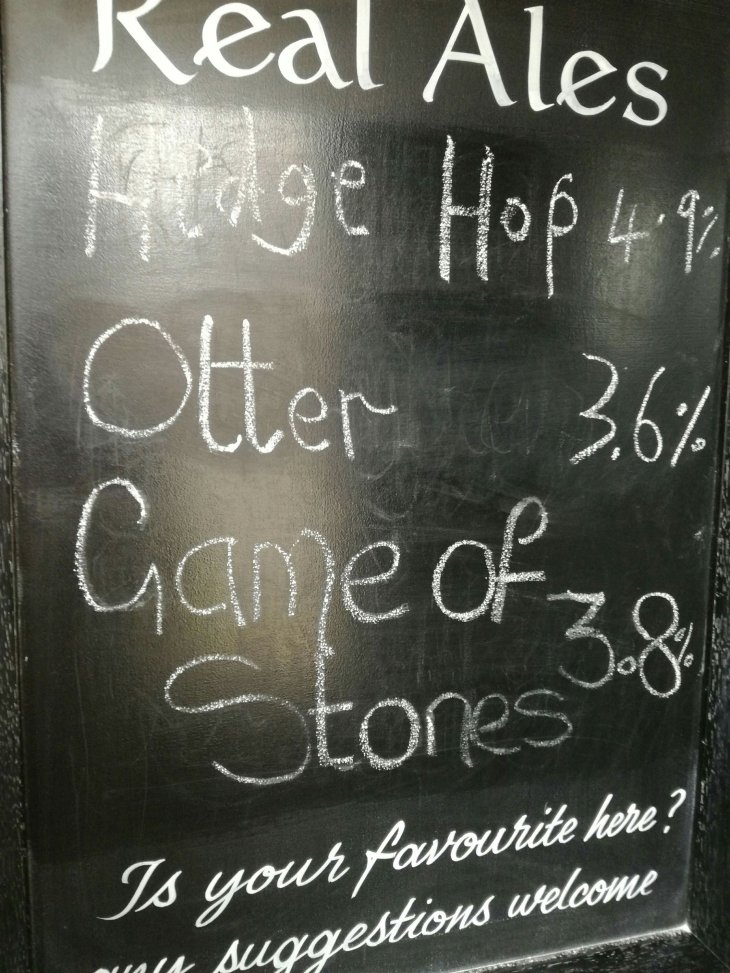 Real Ales
Hedge Hop 4.9%
Otter 3.6%
Game of
Stones 3.8%
Is your favourite here?
any suggestions welcome